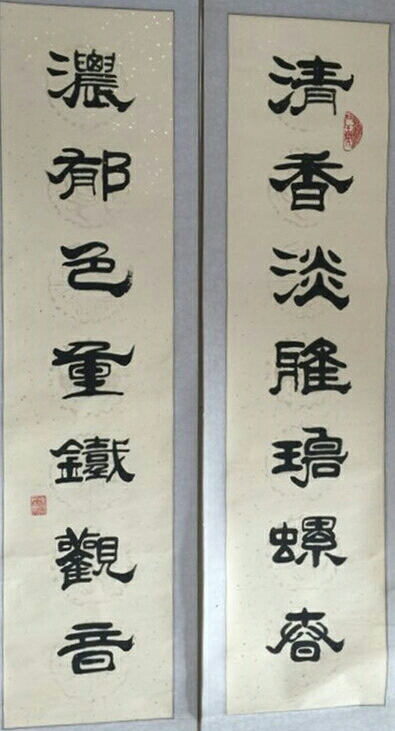 清香淡雅碧螺春
濃郁色重鐵觀音